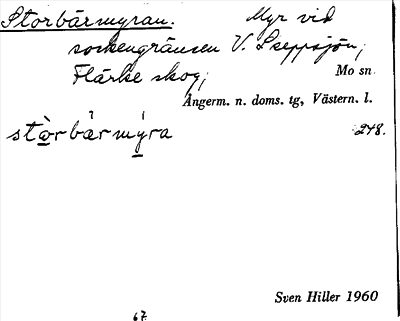 Storbärmyran. Myr vid
sockengränsen V. Lseppsjön,
Flärke skog; Mo sn
Ångerm. n. doms. tg, Västern. l.
stòrbærmýra 248.
Sven Hiller 1960
67.